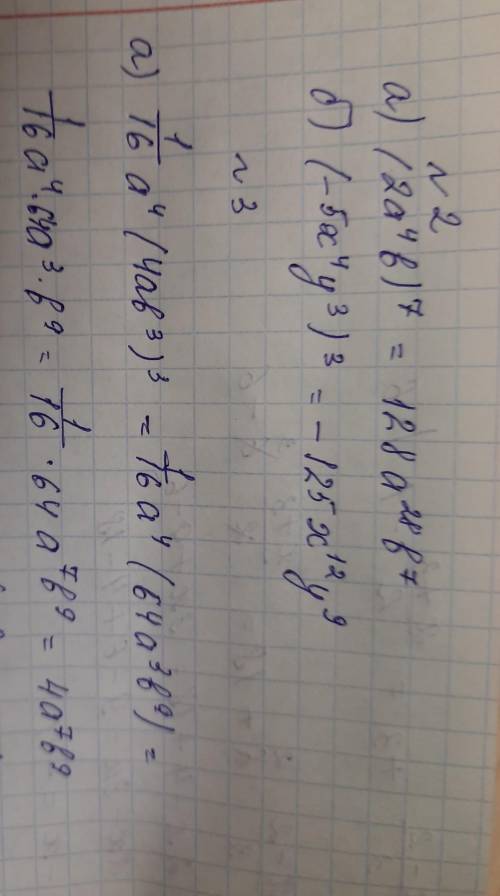 N 2
а) (2a⁴b)⁷ = 128a²⁸b⁷
б) (-5x⁴y³)³ = -125x¹²y⁹
N 3
а) 1/16 a⁴ (4ab³)³ = 1/16 a⁴ (64a³b⁹) =
1/16 a⁴·64a³·b⁹ = 1/16 · 64a⁷b⁹ = 4a⁷b⁹